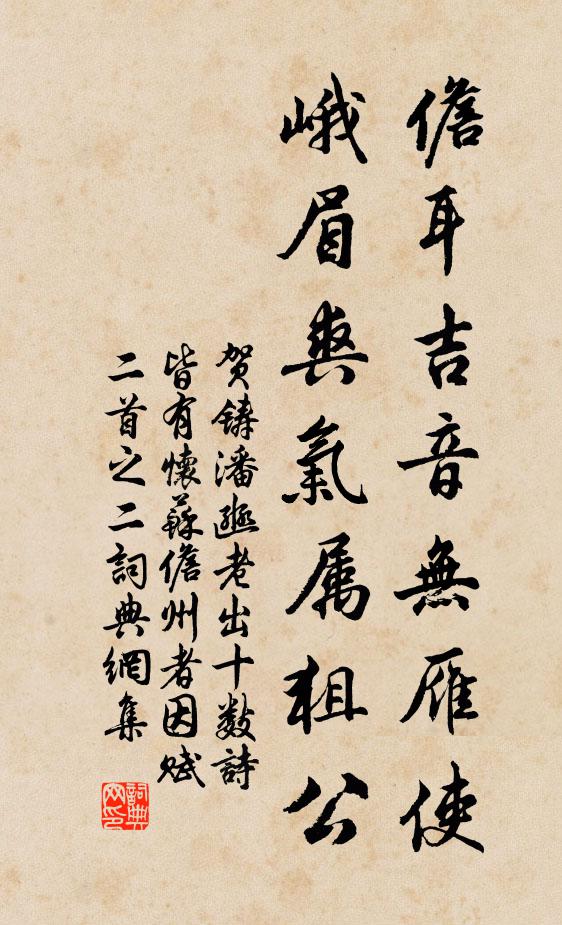 儋耳吉音無雁使
峨眉爽氣属狙公
贺鑄潘邠老出十數詩
皆有懷蘇儋州者因赋
二首之二詞典網集
詞典网印